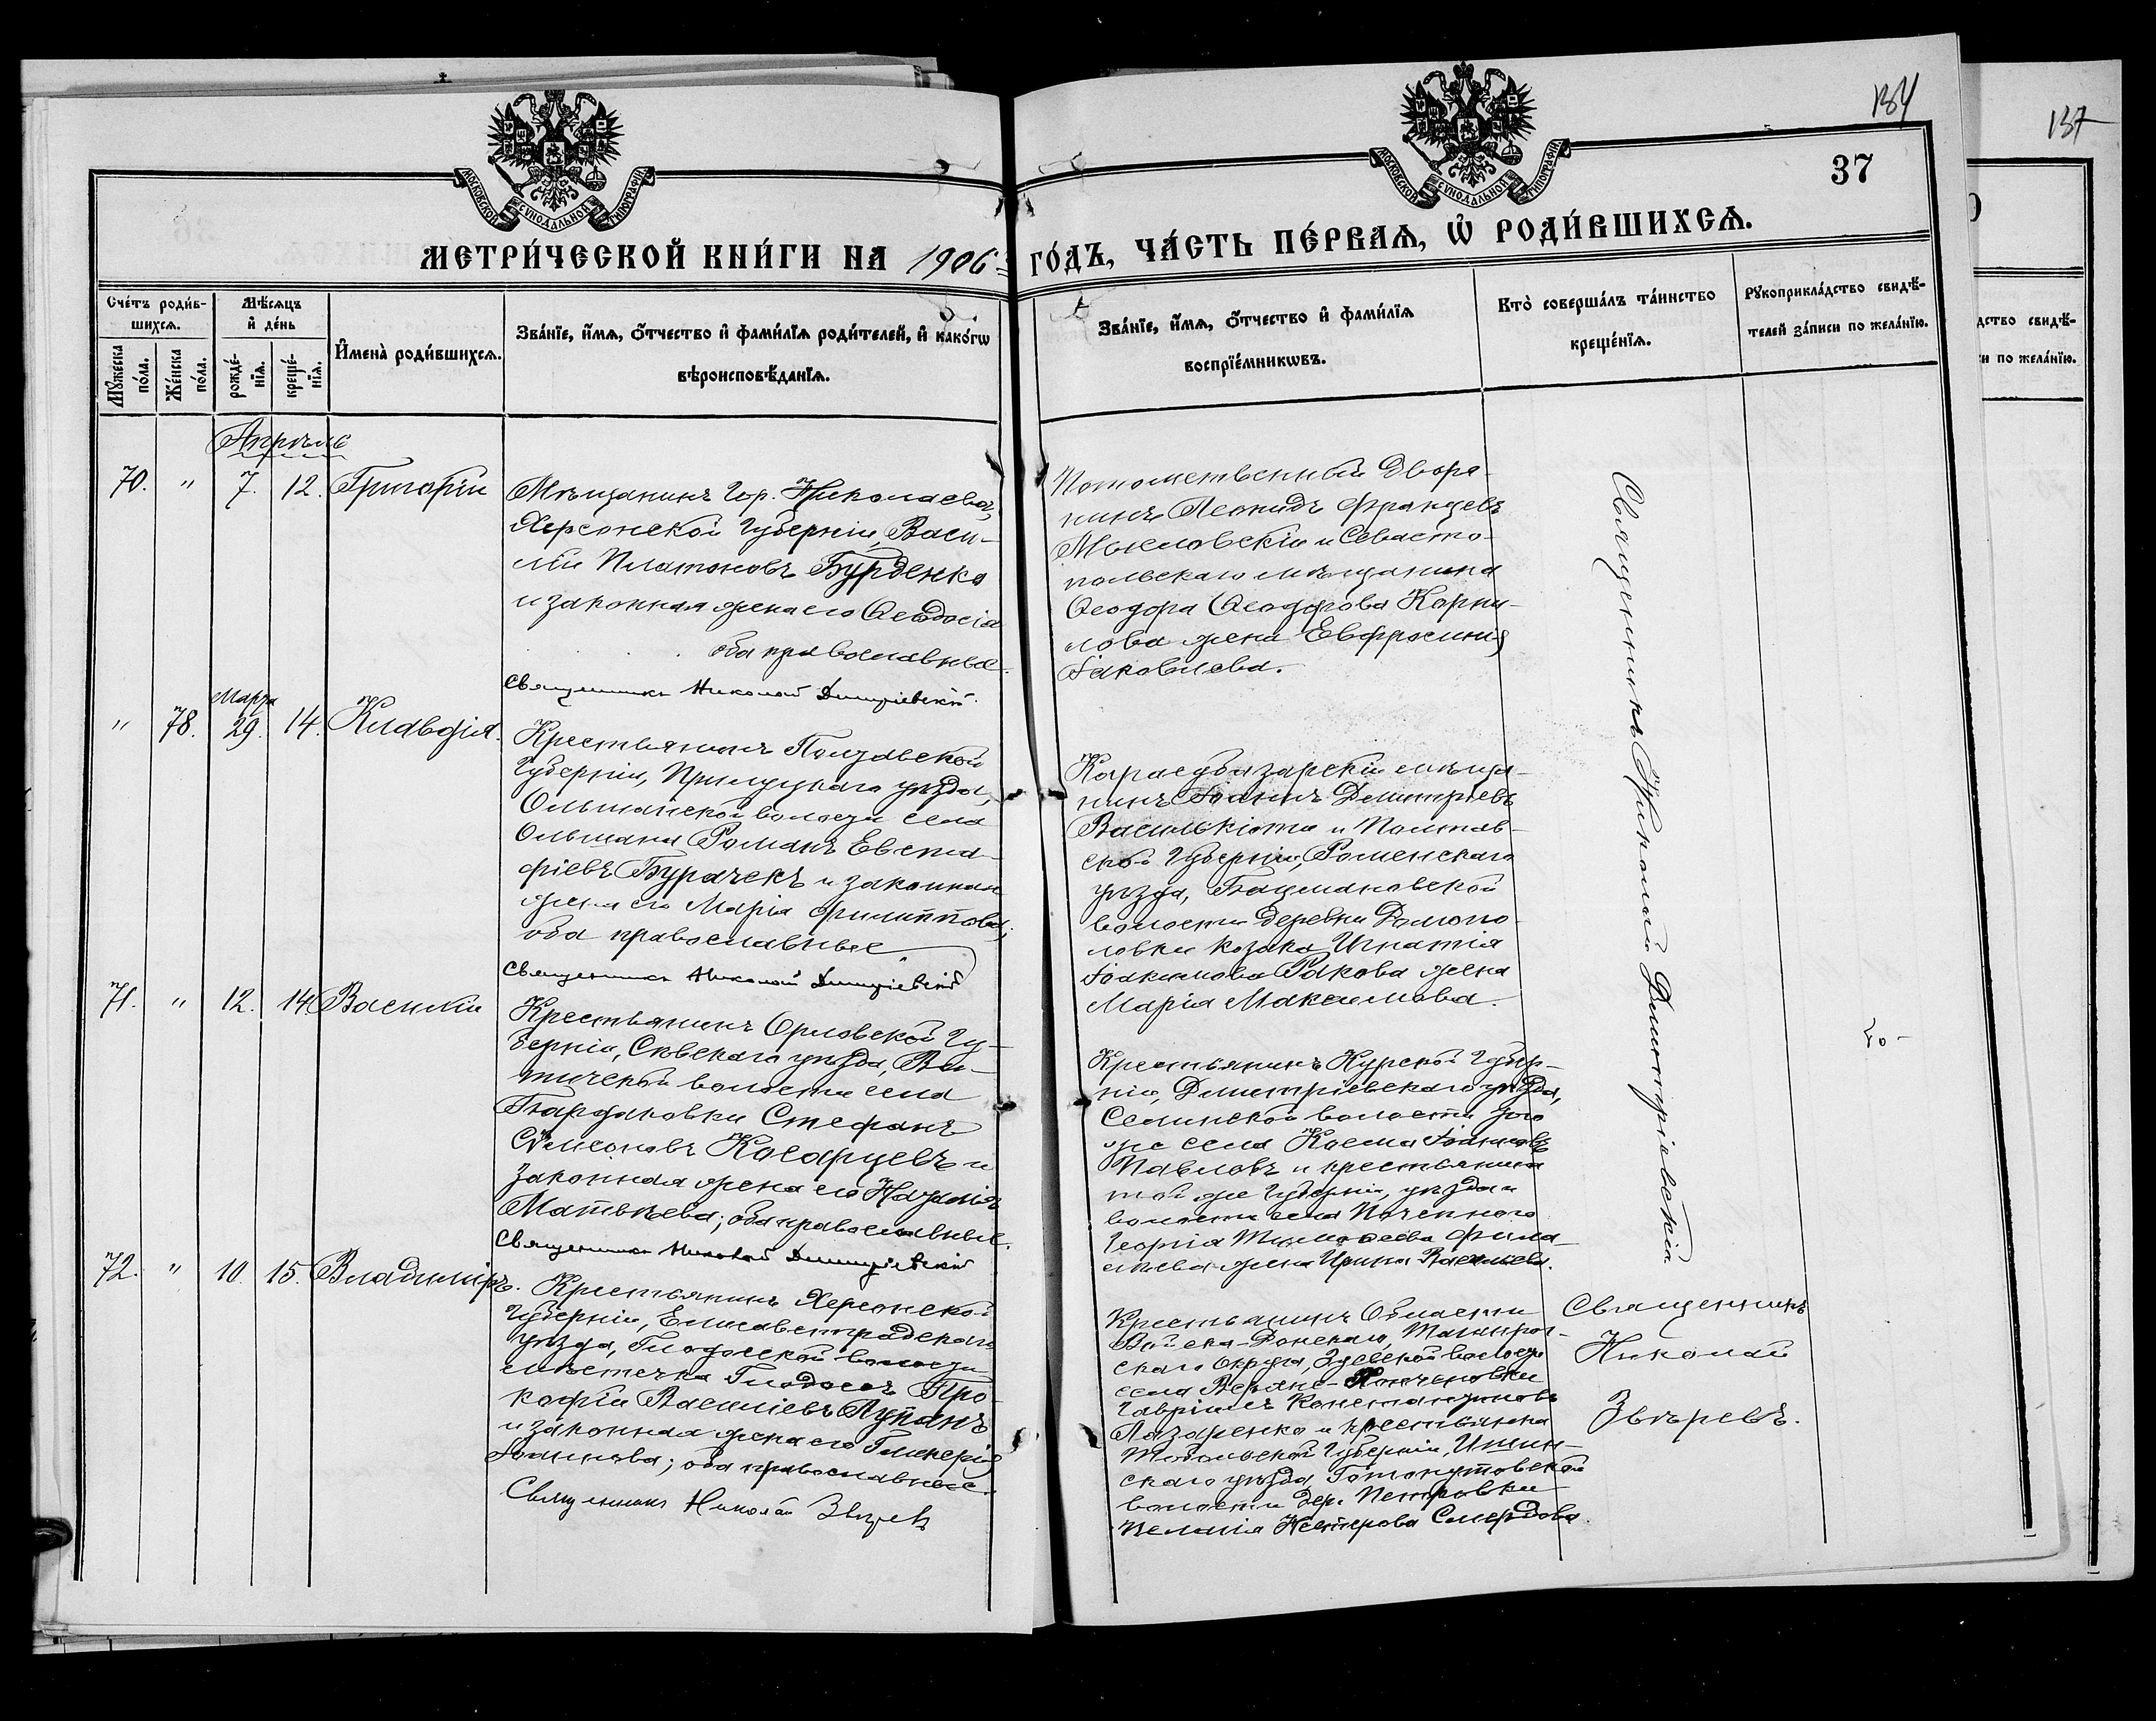 134
137
37
МОСКОВСКОЙ СѴНОДАЛЬНОЙ ТИПОГРАФІИ
МОСКОВСКОЙ СѴНОДАЛЬНОЙ ТИПОГРАФІИ
МЕТРИ́ЧЕСКОЙ КНИ́ГИ НА 1906
ГО́ДЪ, ЧА́СТЬ ПЕ́РВАѦ, Ѡ҆ РОДИ́ВШИХСѦ.
Сче́тъ роди́в-
шихсѧ.
Мꙋжеска по́ла.
Же́нска по́ла.
Мѣ́сѧцъ
и҆ де́нь
рожде́-
нїѧ.
креще́-
нїѧ.
И҆мена̀ роди́вшихсѧ.
Зва́нїе, и҆́мѧ, ѻ҆́тчество и҆ фами́лїѧ роди́телей, и҆ како́гѡ
вѣроисповѣ́данїѧ.
Зва́нїе, и҆́мѧ, ѻ҆́тчество и҆ фами́лїѧ
воспрїе́мникѡвъ.
Кто̀ соверша́лъ та́инство
креще́нїѧ.
Рꙋкоприкла́дство свидѣ́-
телей за́писи по жела́нїю.
дство свидѣ́-
и по жела́нїю.
Апрѣль
70. " 7. 12. Григорій
Мѣщанинъ гор. Николаева,
Херсонской Губерніи, Васи-
лій Платоновъ Бурденко
и законная жена его Ѳеодосія
оба православные.
Священникъ Николай Димитріевскій.
Потомственный Дворя-
нинъ Леонидъ Францевъ
Мысловскій и Севасто-
польскаго мѣщанина
Ѳеодора Ѳеодорова Корни-
лова жена Евфросинія
Іаковлева.
Марта
" 78. 29. 14. Клавдія.
Крестьянинъ Полтавской
Губерніи, Прилуцкаго уѣзда,
Ольшанской волости села
Ольшана Романъ Евста-
фіевъ Бурачекъ и законная
жена его Марія Филиппова;
оба православные
Священникъ Николай Димитріевскій
Карасубазарскій мѣща-
нинъ Іоаннъ Димитріевъ
Василькіоти и Полтав-
ской Губерніи, Роменскаго
уѣзда, Бацмановской
волости деревни
ловки козака Игнатія
Іоакимова Ракова жена
Марія Максимова.
71. " 12. 14. Василій
Крестьянинъ Орловской Гу-
берніи, Сѣвскаго уѣзда,
волости села
Стефанъ
Симеоновъ Косарцевъ и
законная жена его Наталія
Матвѣева; оба православные.
Священникъ Николай Димитріевскій
Крестьянинъ Курской Губер-
ніи, Димитріевскаго уѣзда,
волости того
же села Косма Іоанновъ
Павловъ и крестьянина
той же Губерніи, уѣзда и
волости села
Георгія Тимоѳеева
жена Ирина Васильева.
Священникъ Николай Димитріевскій
72. " 10. 15. Владиміръ.
Крестьянинъ Херсонской
Губерніи, Елисаветградскаго
уѣзда, Глодосской волости
мѣстечка Глодосъ Про-
кофій Василіевъ Лупанъ
и законная жена его Гликерія
Іоаннова; оба православные.
Священникъ Николай Звѣревъ
Крестьянинъ Области
Войска-Донскаго, Таганрог-
скаго округа, волости
села
Гавріилъ Константиновъ
Лазаренко и крестьянка
Тобольской Губерніи, Ишим-
скаго уѣзда,
волости дер. Петровки
Пелагія Нестерова Смердова.
Священникъ
Николай
Звѣревъ.